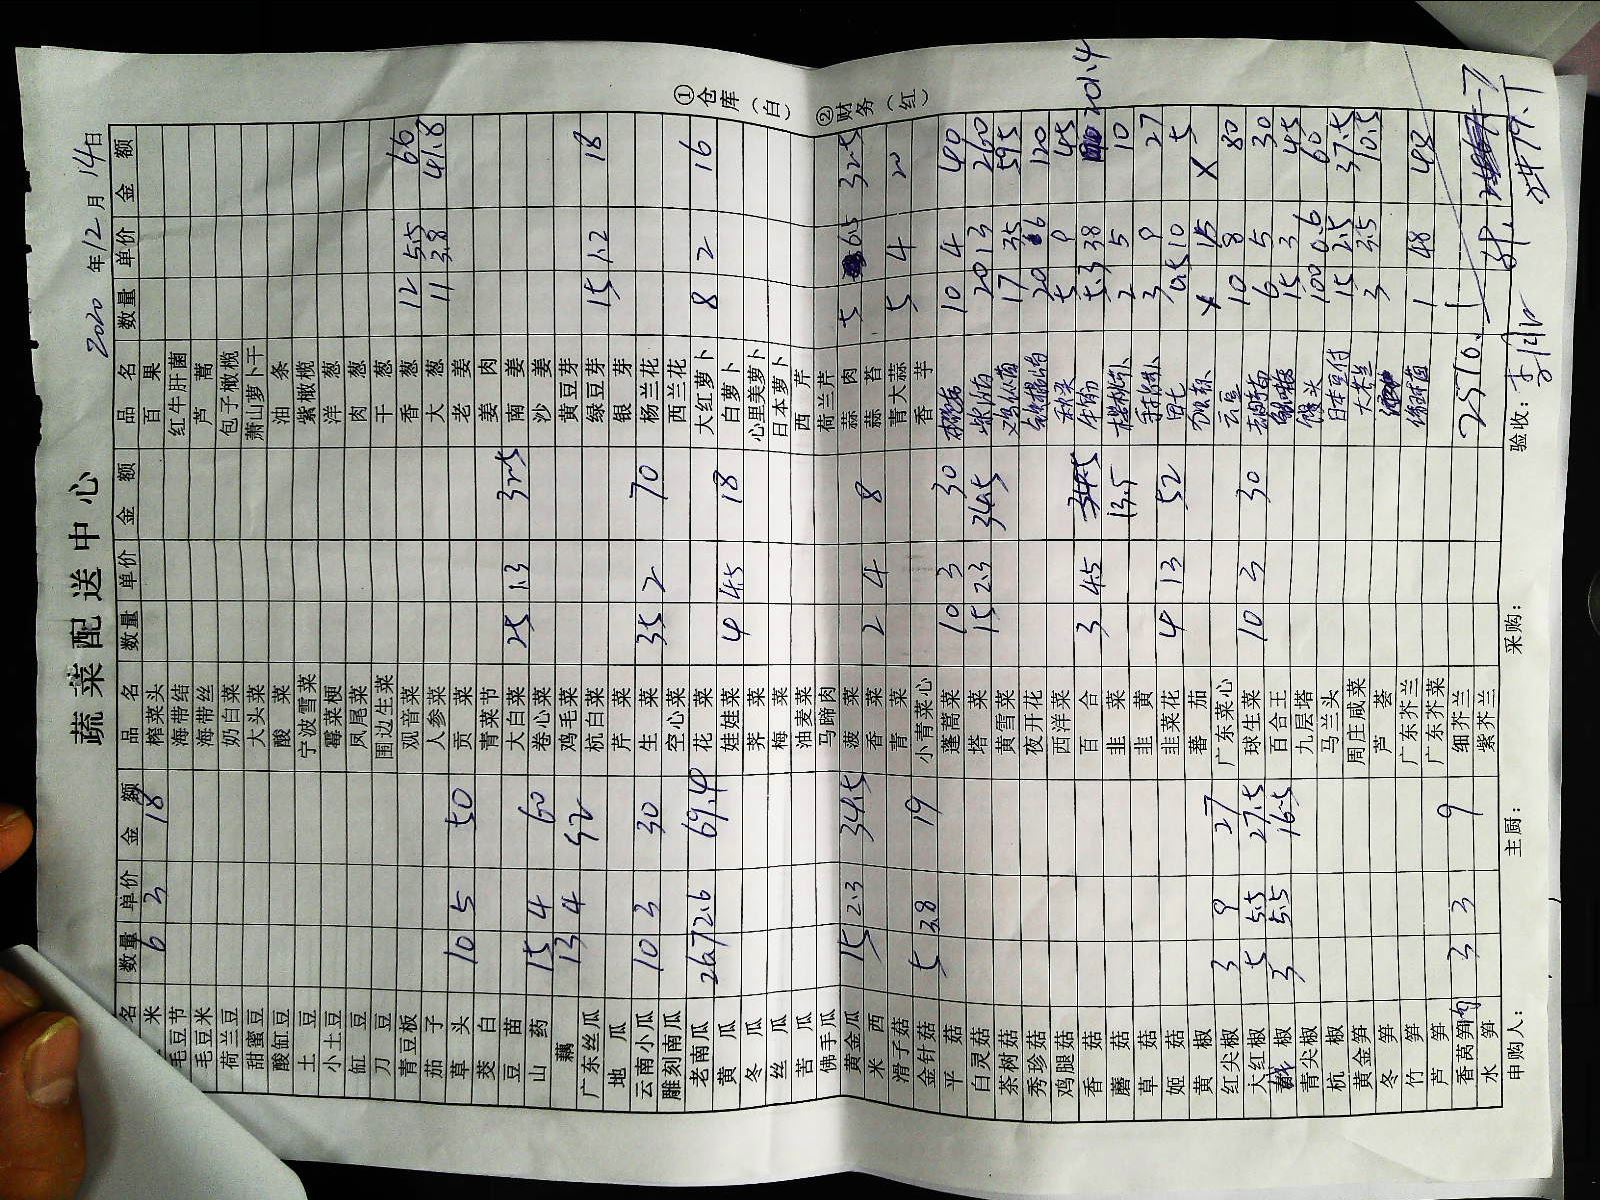 蔬菜配送中心
2020年12月14日
品名 数量 单价 金额 品名 数量 单价 金额 品名 数量 单价 金额
米 6 3 18 榨菜头 百果
毛豆节 海带结 红牛肝菌
毛豆米 海带丝 芦蒿
荷兰豆 奶白菜 包子橄榄
甜蜜豆 大头菜 萧山萝卜干
酸豇豆 酸菜 油条
土豆 宁波雪菜 紫橄榄
小土豆 霉菜梗 洋葱
豇豆 凤尾菜 肉葱
刀豆 围边生菜 干葱
青豆板 观音菜 香葱 12 5.5 66
茄子 人参菜 大葱 11 3.8 41.8
草头 10 5 50 贡菜 老姜
茭白 青菜节 姜肉
豆苗 大白菜 25 1.3 32.5 南姜
山药 15 4 60 卷心菜 沙姜
藕 13 4 52 鸡毛菜 黄豆芽
广东丝瓜 杭白菜 绿豆芽 15 1.2 18
地瓜 芹菜 银芽
云南小瓜 10 3 30 生菜 35 2 70 杨兰花
雕刻南瓜 空心菜 西兰花
老南瓜 26.7 2.6 69.4 花菜 大红萝卜 8 2 16
黄瓜 娃娃菜 4 4.5 18 白萝卜
冬瓜 荠菜 心里美萝卜
丝瓜 梅菜 日本萝卜
苦瓜 油麦菜 西芹
佛手瓜 马蹄肉 荷兰芹
黄金瓜 15 2.3 34.5 菠菜 蒜肉 5 6.5 32.5
米西 香菜 2 4 8 蒜苔
滑子菇 青菜 青大蒜 5 4 2
金针菇 5 3.8 19 小青菜心 香芋
平菇 蓬蒿菜 10 3 30 10 4 40
白灵菇 塔菜 15 2.3 34.5 20 13 260
茶树菇 黄雪菜 17 35 595
秀珍菇 夜开花 20 6 120
鸡腿菇 西洋菜 秋葵 5 9 45
香菇 百合 3 4.5 牛肉 5.3 38 201.4
蘑菇 韭菜 13.5 2 5 10
草菇 韭黄 3 9 27
姬菇 韭菜花 4 13 52 田七 0.5 10 5
黄椒 蕃茄 15
红尖椒 3 9 27 广东菜心 云豆 10 8 80
大红椒 5 5.5 27.5 球生菜 10 3 30 6 5 30
椒 3 5.5 16.5 百合王 15 3 45
青尖椒 九层塔 馒头 100 0.6 60
杭椒 马兰头 日本豆付 15 2.5 37.5
黄金笋 周庄咸菜 3 3.5 10.5
冬笋 芦荟
竹笋 广东芥兰 1 48 48
芦笋 广东芥菜
香莴笋 3 3 9 细芥兰 2510.1
水笋 紫芥兰 2479.1
申购人： 主厨： 采购： 验收：
①仓库（白） ②财务（红）